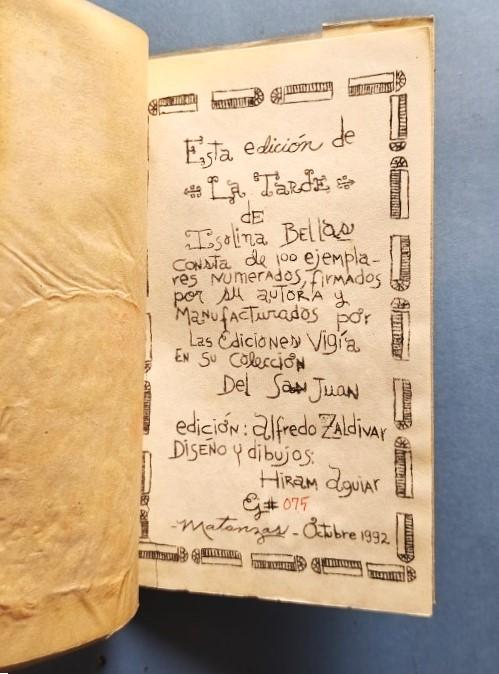 Esta edición de
La Tarde
de
Isolina Bellas
consta de 100 ejempla-
res numerados, firmados
por su autora y
manufacturados por
Las Ediciones Vigía
en su colección
Del San Juan
edición: Alfredo Zaldivar
Diseño y dibujos:
Hiram Aguiar
Ej# 075
-Matanzas - Octubre 1992